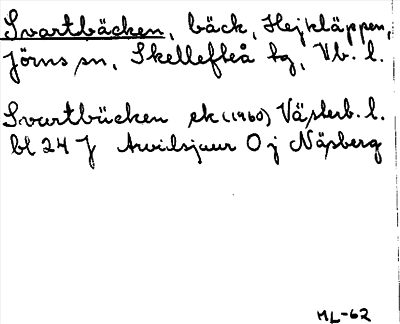 Svartbäcken, bäck, Hejkläppen,
Jörns sn, Skellefteå tg, Vb. l.
Svartbäcken ek (1960) Västerb. l.
bl 24 J Arvidsjaur O j Näsberg
ML-62